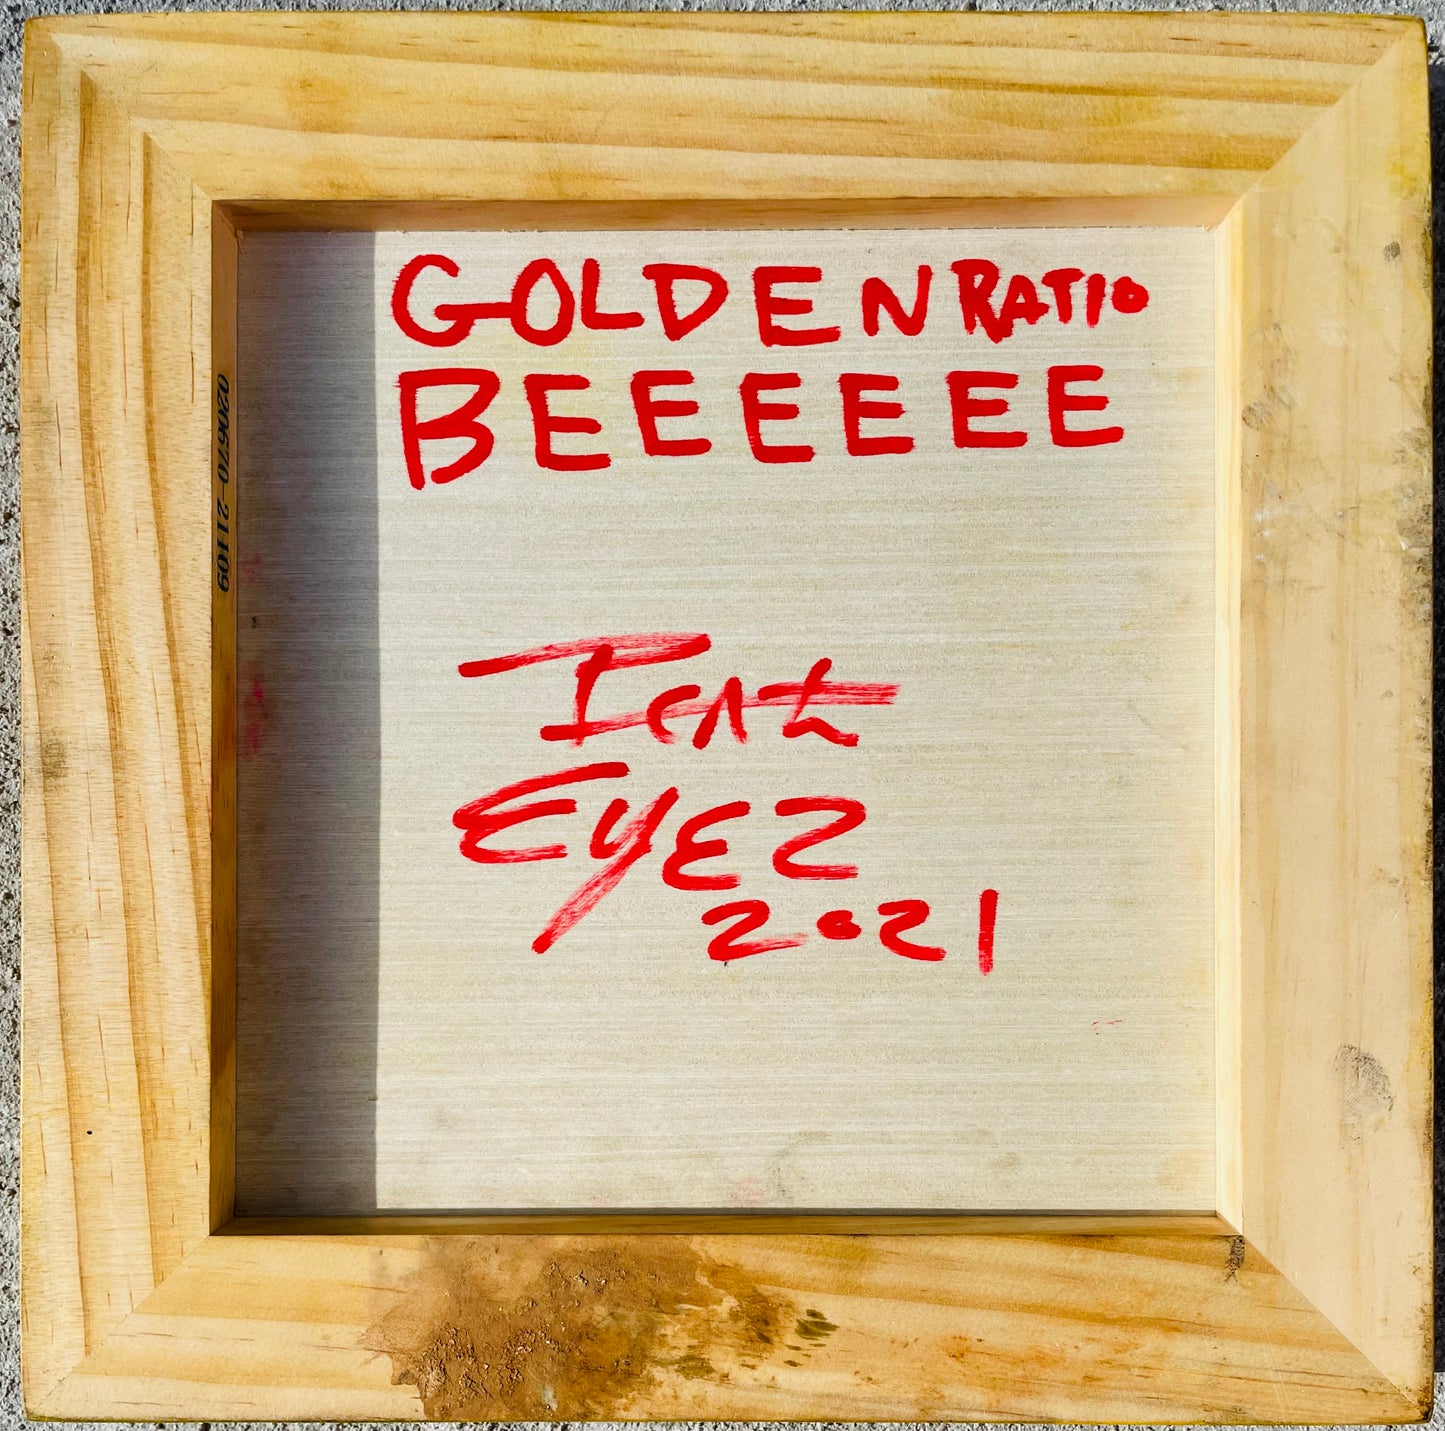 GOLDEN RATIO
BEEEEEE
EYEZ
2021
020670-21109